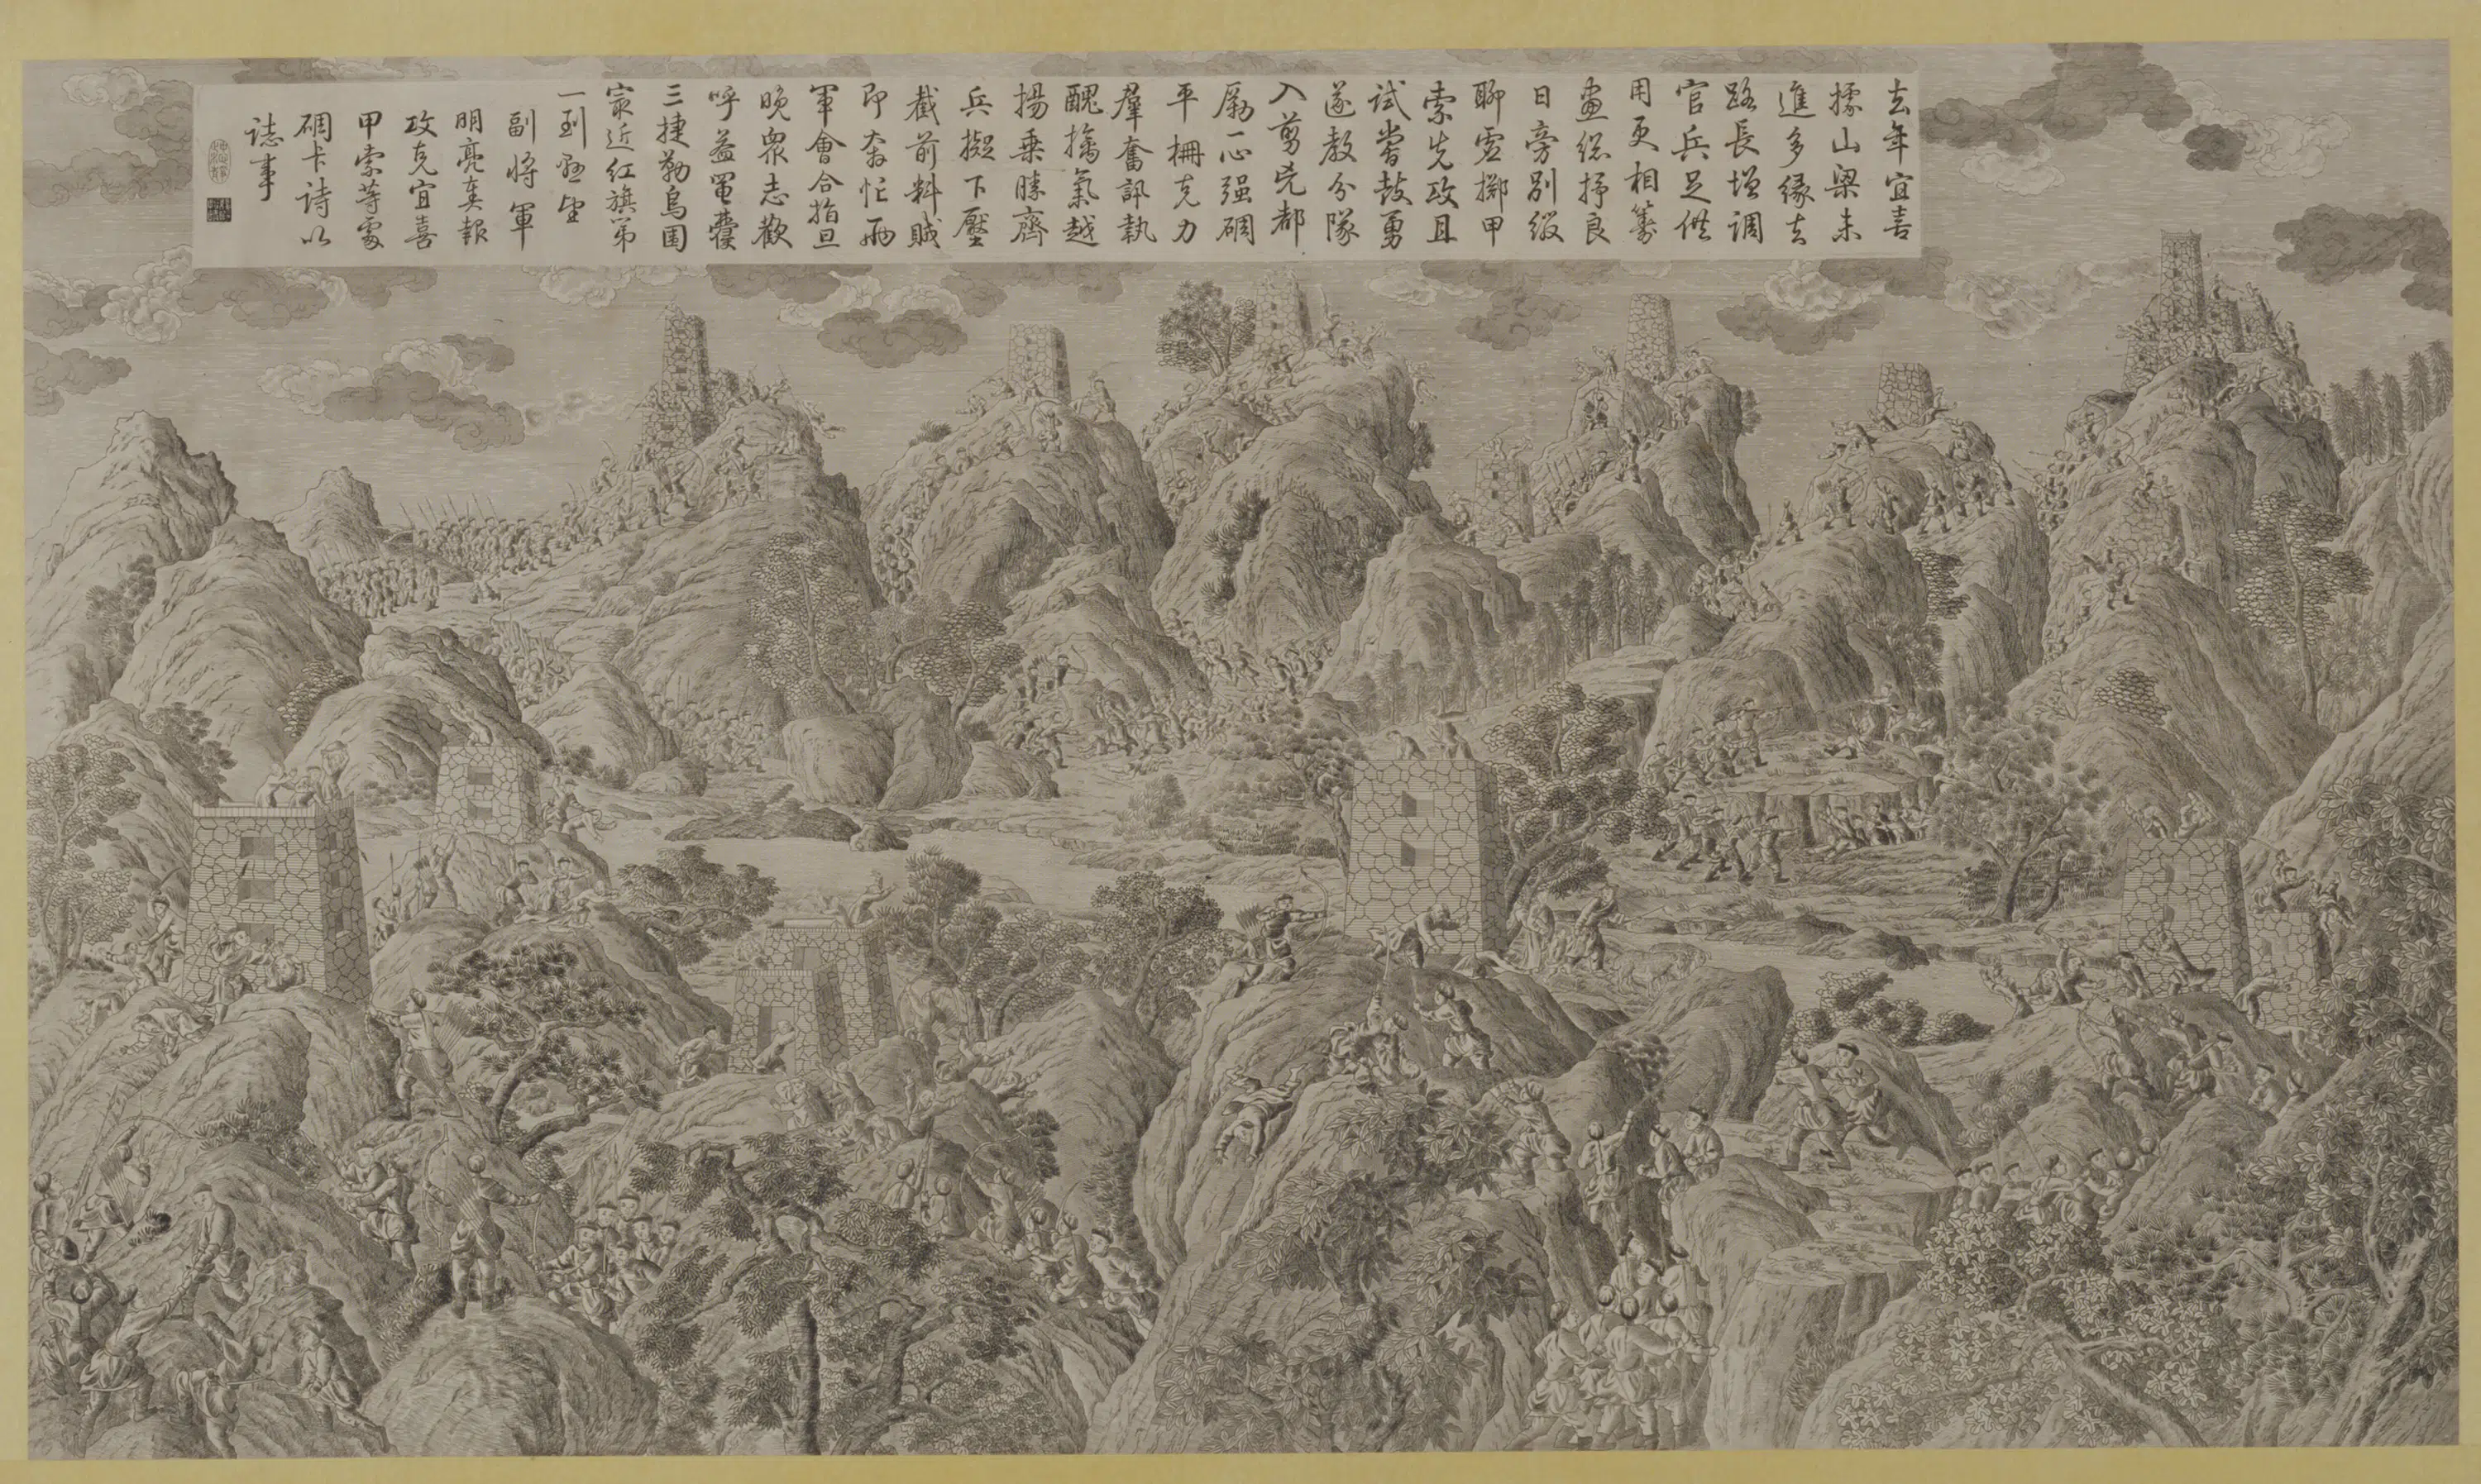 去年宜喜
據山梁未
進多緣去
路長增調
官兵足供
用更相籌
畫總抒良
日旁別綴
聊虛擲甲
索先攻且
試嘗鼓勇
遂教分隊
入剪兇都
勵一心强碉
平柵克力
羣奮訊執
醜擒氣越
揚乘勝齊
兵擬下壓
截前料賊
即奔忙兩
軍會合指旦
晚衆志歡
呼益
三捷勒烏圍
最近紅旗第
一到望
副將軍
明亮奏報
攻克宜喜
甲索等處
碉卡詩以
誌事